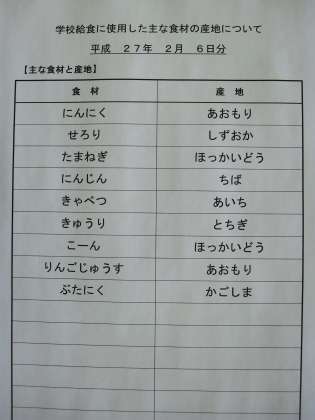 学校給食に使用した主な食材の産地について
平成　２７年　２月　６日分
【主な食材と産地】
食　材　産　地
にんにく　あおもり
せろり　しずおか
たまねぎ　ほっかいどう
にんじん　ちば
きゃべつ　あいち
きゅうり　とちぎ
こーん　ほっかいどう
りんごじゅうす　あおもり
ぶたにく　かごしま